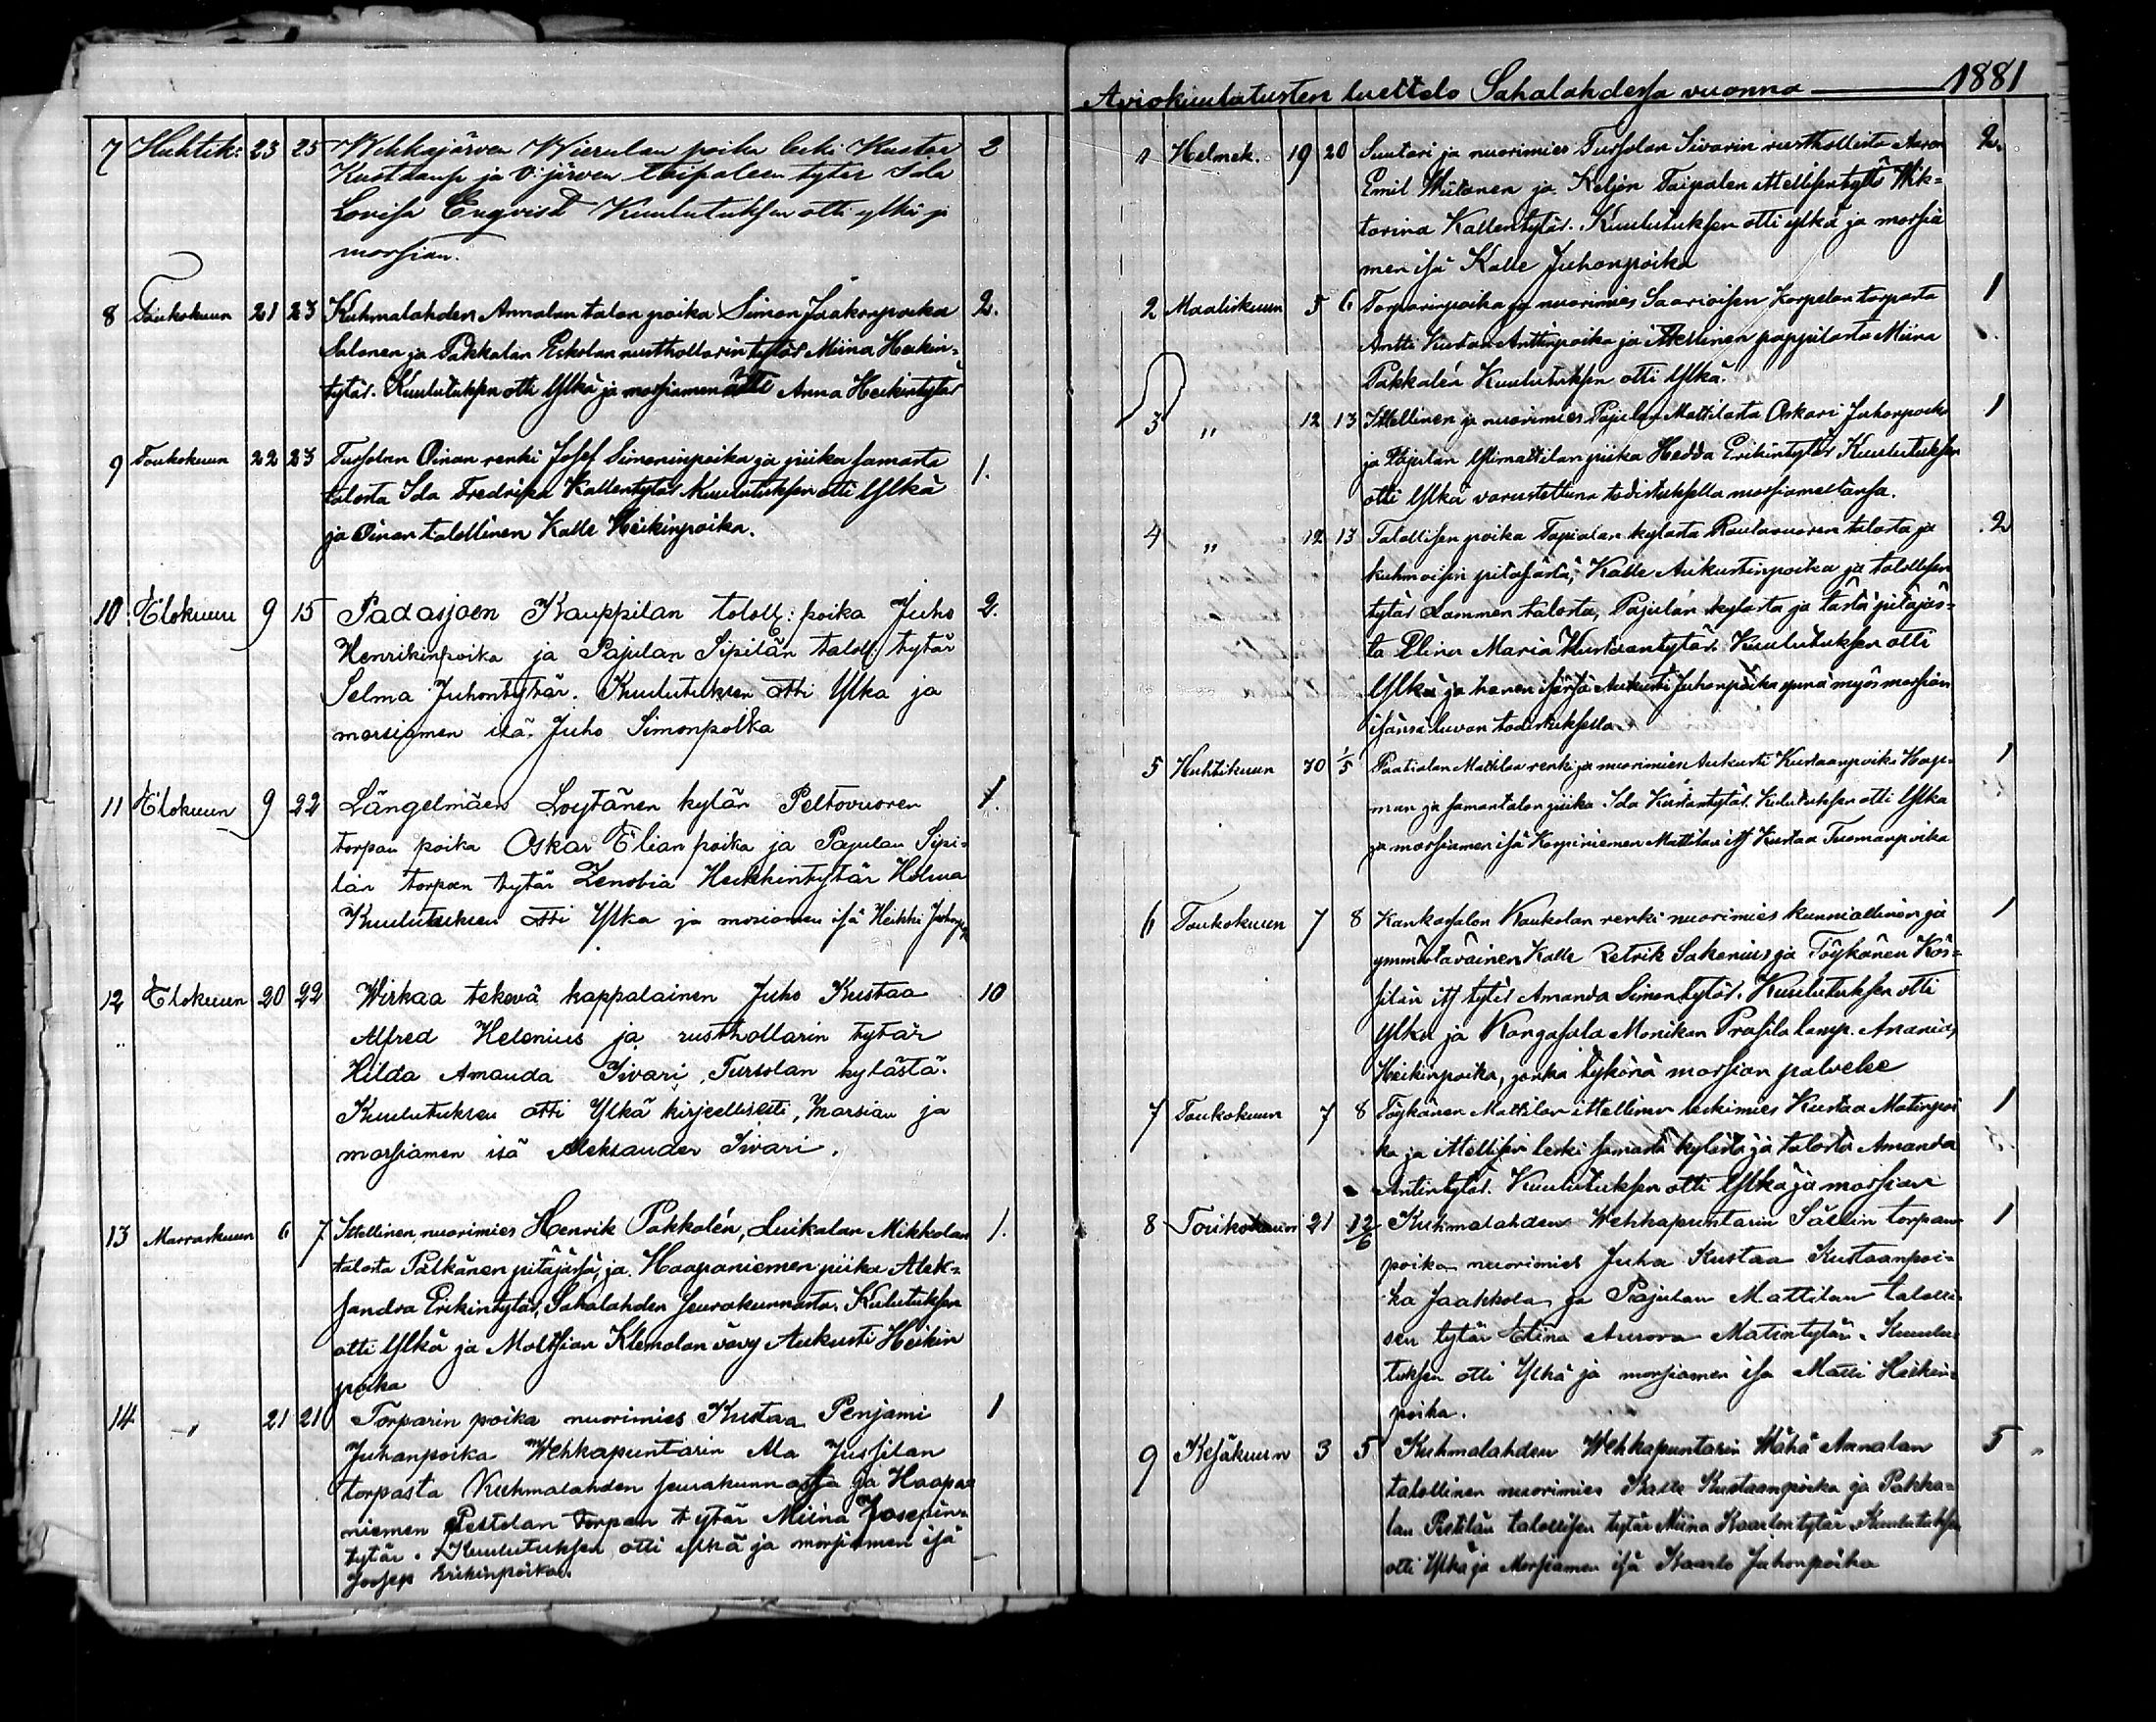 7 Huhtik: 23 25 Wehkajärven Wierulan poika leski Kustaa 2
Kustaanp ja V:järven Taipaleen tytär Ida
Lovisa Enqvist Kuulutuksen otti ylkä ja
morsian.
8 Toukokuun 21 23 Kuhmalahden Annalan talon poika Simon Jaakonpoika 2.
Salonen ja Pakkalan Eskolan rusthollarin tytär Miina Heikin-
tytär. Kuulutuksen otti Ylkä ja morsiamen äiti Anna Heikintytär
9 Toukokuun 22 23 Tursolan Oinan renki Josef Simoninpoika ja piika samasta 1.
talosta Ida Fredrika Kallentytär Kuulutuksen otti Ylkä
ja Oinan talollinen Kalle Heikinpoika.
10 Elokuun 9 15 Padasjoen Kauppilan taloll: poika Juho 2.
Henrikinpoika ja Pajulan Sipilän taloll: tytär
Selma Juhontytär. Kuulutuksen otti Ylkä ja
morsiamen isä. Juho Simonpoika
11 Elokuun 9 22 Längelmäen Löytänen kylän Peltovuoren 1.
torpan poika Oskar Elianpoika ja Pajulan Sipi-
län torpan tytär Zenobia Heikkintytär Holma
Kuulutuksen otti Ylkä ja morsiamen isä Heikki Juhonp
12 Elokuun 20 22 Wirkaa tekevä kappalainen Juho Kustaa 10
Alfred Helenius ja rusthollarin tytär
Hilda Amanda Iivari, Tursolan kylästä.
Kuulutuksen otti Ylkä kirjeellisesti, morsian ja
morsiamen isä Aleksander Iivari.
13 Marraskuun 6 7 Itellinen, nuorimies Henrik Pakkalén, Luikalan Mikkolan 1.
talosta Pälkänen pitäjäsä, ja Haapaniemen piika Alek-
sandra Erikintytär, Sahalahden seurakunnasta. Kulutuksen
otti Ylkä ja Moltsian Klemolan vävy Aukusti Heikin
poika
14 -„- 21 21 Torparin poika nuorimies Kustaa Penjami 1
Juhanpoika Wehkapuntarin Ala Jussilan
torpasta Kuhmalahden seurakunnasta ja Haapa-
niemen Pettolan torpan tytär Miina Josepin-
tytär. Kuulutuksen otti ylkä ja morsiamen isä
Joosep Erikinpoika.
Aviokuulutusten luettelo Sahalahdessa vuonna 1881
1 Helmek. 19 20 Suutari ja nuorimies Tursolan Iivarin rusthollista Aaron 2.
Emil Wiitanen ja Keljon Taipalen ittellisen tytär Wik-
torina Kallentytär. Kuulutuksen otti ylkä ja morsia
men isä Kalle Juhonpoika
2 Maaliskuun 5 6 Torparinpoika ja nuorimies Saarioisen Korpelan torpasta 1
Antti Kustaa Anttinpoika ja Ittellinen pappilasta Miina
Pakkalén Kuulutuksen otti Ylkä.
3 „ 12 13 Ittellinen ja nuorimies Pajulan Mattilasta Oskari Juhonpoika 1
ja Pajulan Ylimattilan piika Hedda Erikintytär Kuulutuksen
otti Ylkä varustettuna todistuksella morsiameltansa.
4 „ 12 13 Talollisen poika Tapialan kylästä Rautavuoren talosta ja 2
kuhmoisin pitäjästä, Kalle Aukustinpoika ja talollisen
tytär Lammen talosta, Pajulan kylästä ja tästä pitäjäs-
tä Elina Maria Kustaantytär. Kuulutuksen otti
Ylkä ja hänen isänsä Aukusti Juhonpoika ynnä myös morsian
isänsä luvan todistuksella.
5 Huhtikuun 30 1/5 Paatialan Mattilan renki ja nuorimies Aukusti Kustaanpoika Hag- 1
man ja saman talon piika Ida Kustantytär. Kulutuksen otti Ylkä
ja morsiamen isä Korpiniemen Mattilan its Kustaa Tuomanpoika
6 Toukokuun 7 8 Kankasalon Kaukolan renki nuorimies kunniallinen ja 1
ymmärtäväinen Kalle Retrik Sakenius ja Töykänen Käs-
silän its tytär Amanda Simontytär. Kuulutuksen otti
Ylkä ja Kangasala Monikan Prosila lamp. Anania
Heikinpoika, jonka tykönä morsian palvelee
7 Toukokuun 7 8 Töykänen Mattilan ittellinen leskimies Kustaa Matinpoi 1
ka ja ittellisen leski samasta kylästä ja talosta Amanda
Antintytär. Kuulutuksen otti Ylkä ja morsian
8 Toukokuun 21 12/6 Kuhmalahden Wehkapuntarin Sällin torpan 1
poika nuorimies Juha Kustaa Kustaanpoi-
ka Jaakkola ja Pajulan Mattilan talolli-
sen tytär Elina Aurora Matintytär. Kuulu-
tuksen otti Ylkä ja morsiamen isä Matti Heikin-
poika.
9 Kesäkuun 3 5 Kuhmalahden Wehkapuntarin Wähä Annalan 5
talollinen nuorimies Kalle Kustaanpoika ja Pakka-
lan Pertilän talollisen tytär Miina Kaarlontytär. Kuulutuksen
otti Ylkä ja Morsiamen isä Kaarlo Juhonpoika